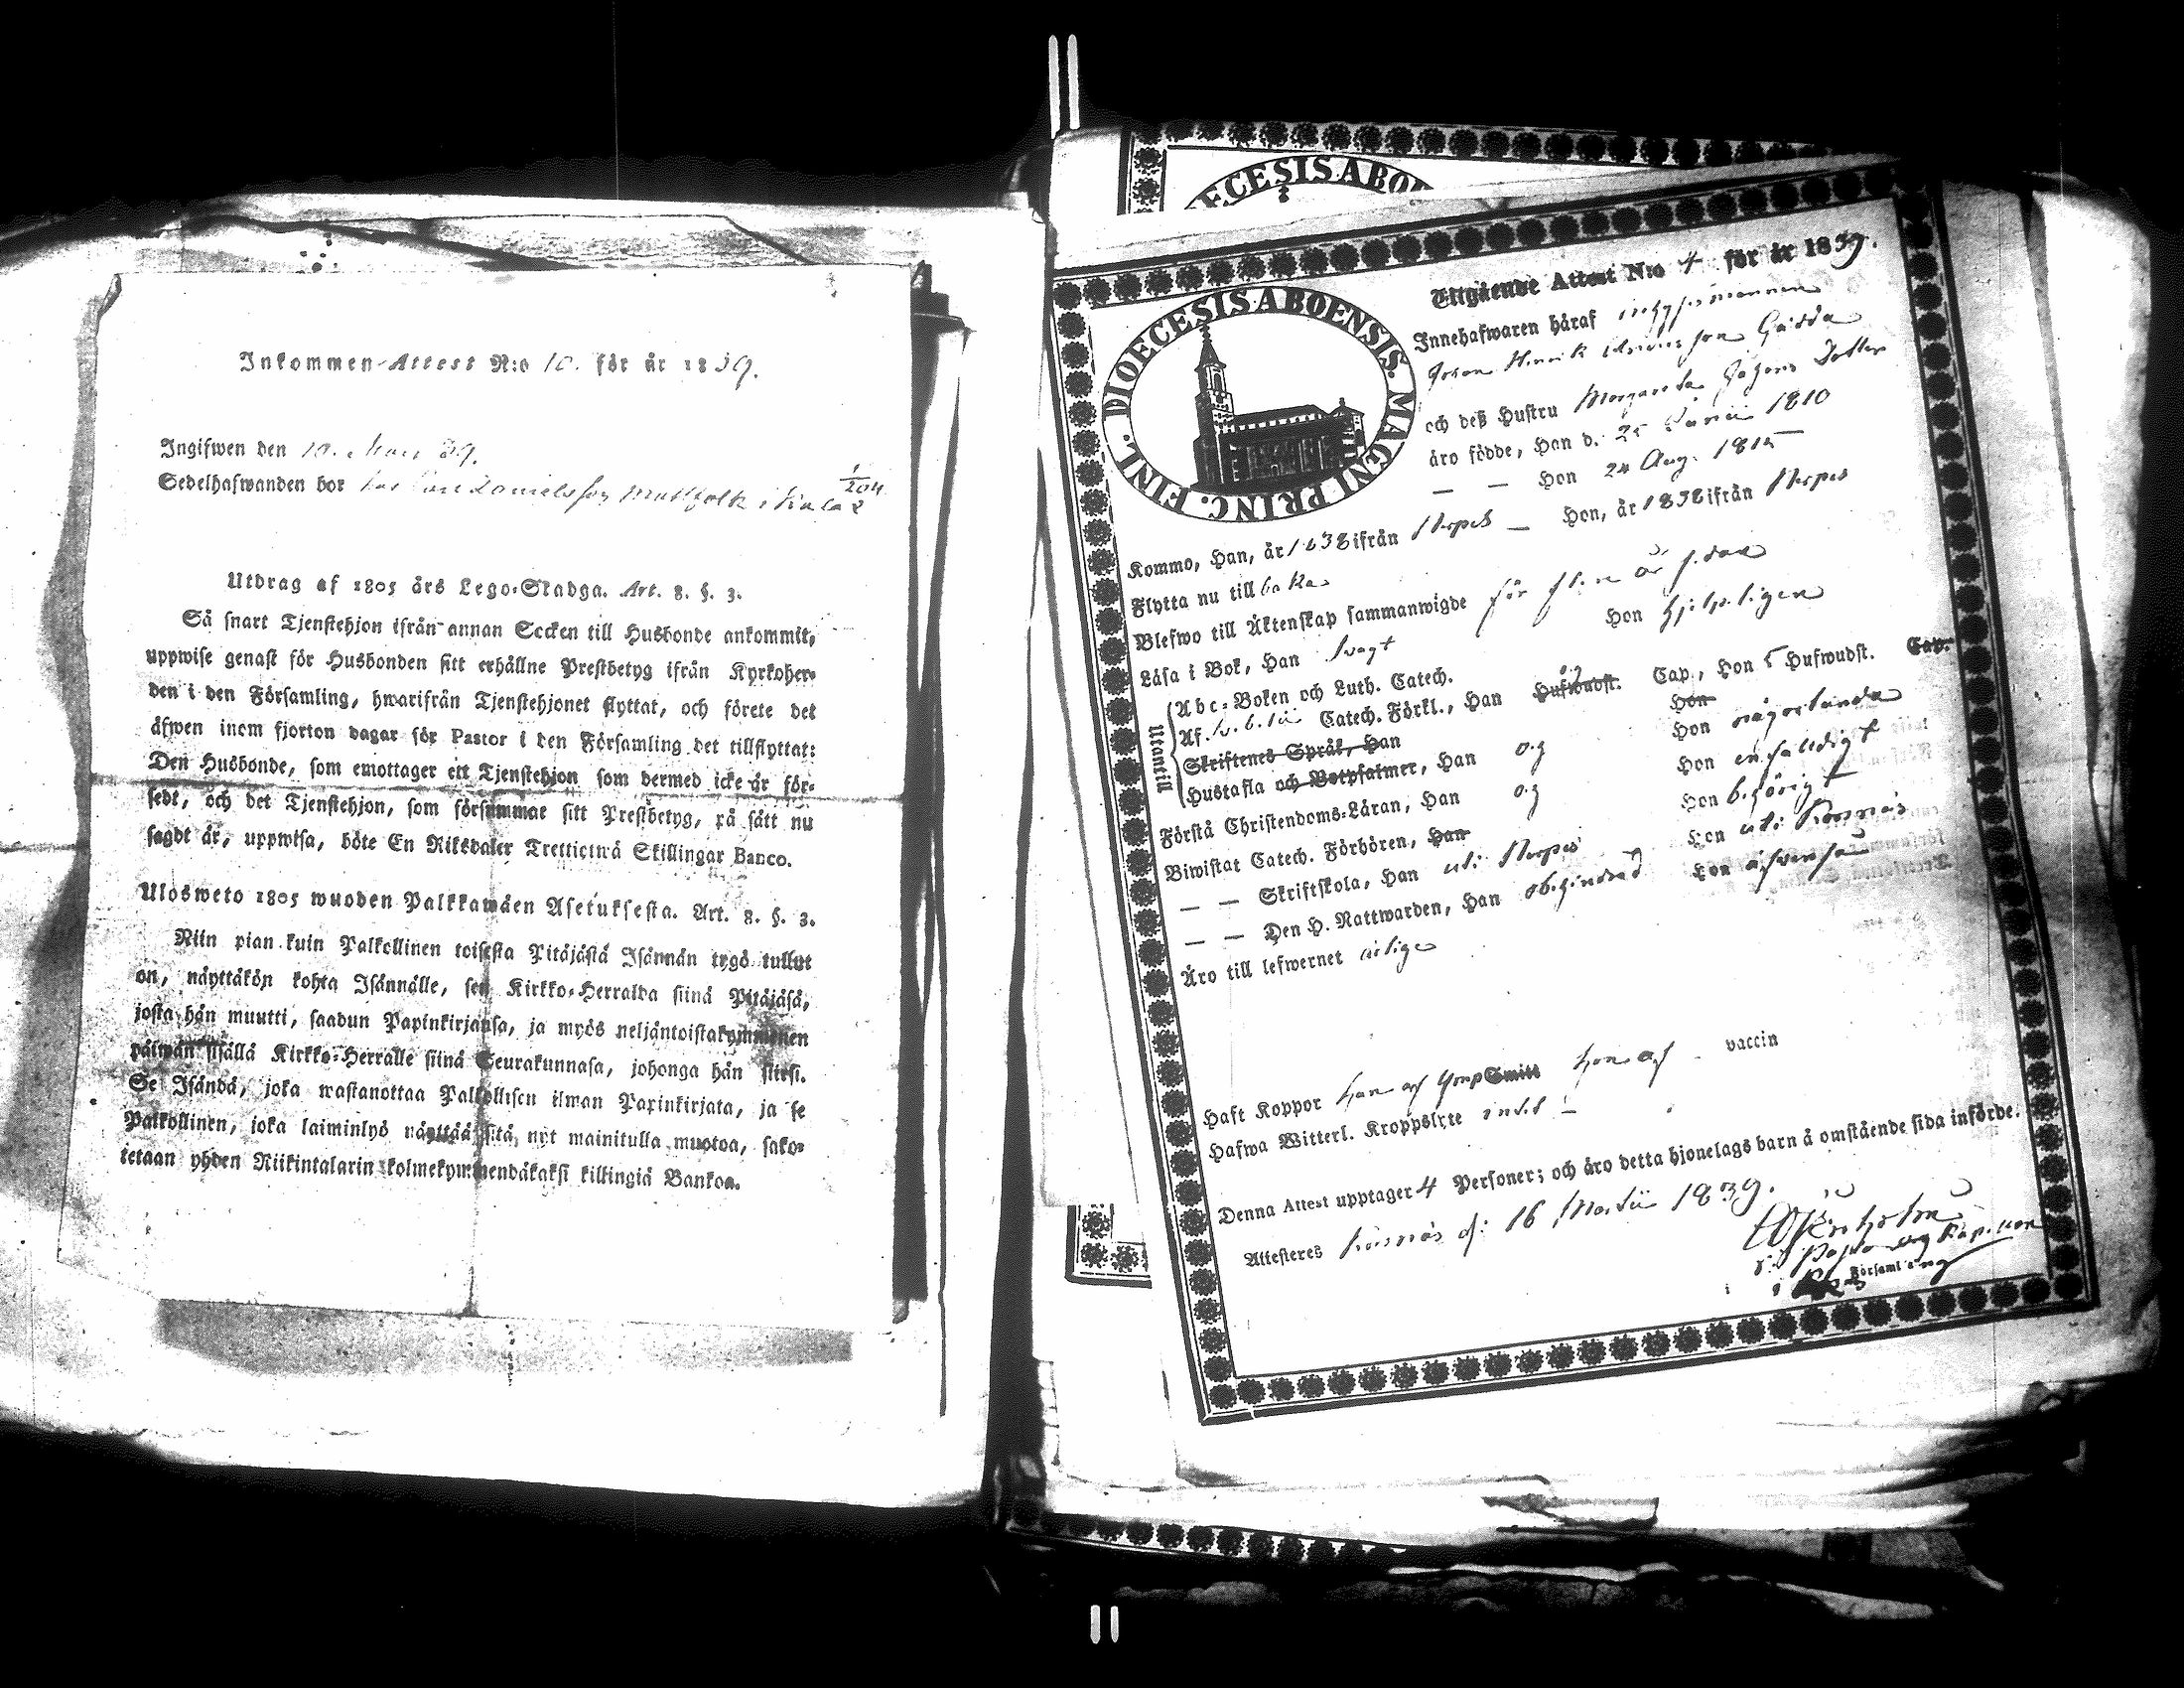 Inkommen-Attest N:o 10. för år 1839.
Ingifwen den 10. 39.
Sedelhafwanden bor Danielsson i
1/204
Utdrag af 1805 års Lego-Stadga. Art. 8. §. 3.
Så snart Tjenstehjon ifrån annan Socken till Husbonde ankommit,
uppwise genast för Husbonden sitt erhållne Prestbetyg ifrån Kyrkoher-
den i den Församling, hwarifrån Tjenstehjonet flyttat, och förete det
äfwen inom fjorton dagar för Pastor i den Församling det tillflyttat:
Den Husbonde, som emottager ett Tjenstehjon som dermed icke är för-
sedt, och det Tjenstehjon, som försummat sitt Prestbetyg, på sätt nu
sagdt är, uppwisa, böte En Riksdaler Trettiotwå Skillingar Banco.
Ulosweto 1805 wuoden Palkkawäen Asetuksesta. Art. 8. §. 3.
Niin pian kuin Palkollinen toisesta Pitäjästä Isännän tygö tullut
on, näyttäkön kohta Isännälle, sen Kirkko-Herralda siinä Pitäjäsä,
josta hän muutti, saadun Papinkirjansa, ja myös neljäntoistakymmenen
päiwän sisällä Kirkko-Herralle siinä Seurakunnasa, johonga hän siirsi.
Se Isändä, joka wastanottaa Palkollisen ilman Papinkirjata, ja se
Palkollinen, joka laiminlyö näyttää sitä, nyt mainitulla muotoa, sako-
tetaan yhden Riikintalarin kolmekymmendäkaksi killingiä Bankoa.
ECESIS ABO
DIOECESIS ABOENSIS. MAGNI PRINC. FINL.
Utgående Attest N:o 4 för år 1839.
Innehafwaren håraf inhysesmannen
Johan Henrik Gädda
och deß Hustru Margareta Dotter
äro födde, Han d. 25 1810
— — Hon 24 Aug. 1815
Kommo, Han, år 1838 ifrån Nerpes — Hon, år 1838 ifrån Nerpes
Flytta nu tillbaka
Blefwo till Äktenskap sammanwigde för flere år sedan
Läsa i Bok, Han Swagt Hon hjelpeligen
Utantill
Abc-Boken och Luth. Catech.
Af Catech. Förkl., Han Hufwudst. Cap., Hon 5 Hufwudst. Cap.
Skriftenes Språk, Han Hon
Hustafla och Botpsalmer, Han o.g Hon någorlunda
Förstå Christendoms-Läran, Han o.g Hon enfaldigt
Biwistat Catech. Förhören, Han Hon behörigt
— — Skriftskola, Han uti Nerpes Hon uti Korsnäs
— — Den H. Nattwarden, Han obehindrad Hon äfwenså
Äro till lefwernet ärlige
Haft Koppor Han af Smitt Hon af vaccin
Hafwa Witterl. Kroppslyte intet —
Denna Attest upptager 4 Personer; och äro detta hjonelags barn å omstående sida införde.
Attesteres Korsnäs d: 16 Martii 1839.
Församling